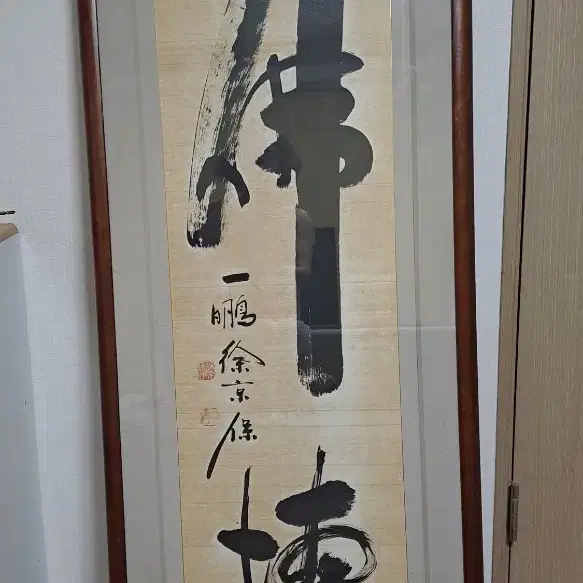 佛
一鵬徐京保